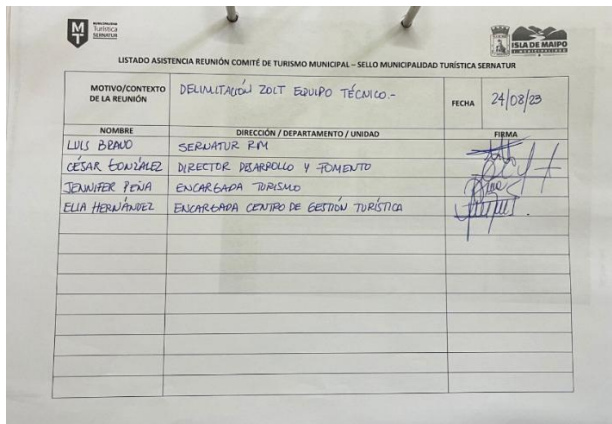 MT
MUNICIPALIDAD
Turística
SERNATUR
ISLA DE MAIPO
I. MUNICIPALIDAD
LISTADO ASISTENCIA REUNIÓN COMITÉ DE TURISMO MUNICIPAL – SELLO MUNICIPALIDAD TURÍSTICA SERNATUR
MOTIVO/CONTEXTO
DE LA REUNIÓN
DELIMITACIÓN ZOLT EQUIPO TÉCNICO.-
FECHA
24/08/23
NOMBRE DIRECCIÓN / DEPARTAMENTO / UNIDAD FIRMA
LUIS BRAVO SERNATUR RM
CÉSAR GONZÁLEZ DIRECTOR DESARROLLO Y FOMENTO
JENNIFER PEÑA ENCARGADA TURISMO
ELIA HERNÁNDEZ ENCARGADA CENTRO DE GESTIÓN TURÍSTICA